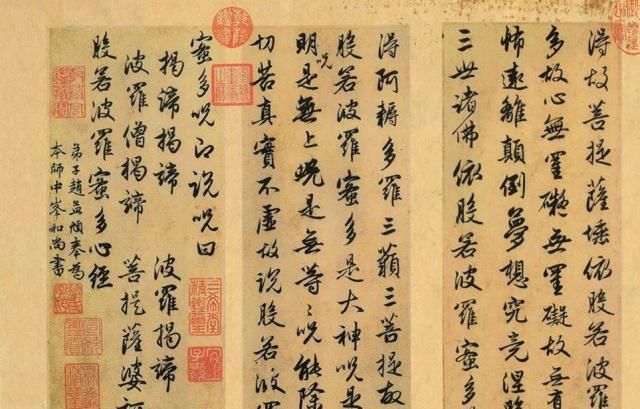 得故菩提薩埵依般若波羅
多故心無罣礙無罣礙故無有
怖遠離顛倒夢想究竟涅
三世諸佛依般若波羅蜜多
得阿耨多羅三藐三菩提故
般若波羅蜜多是大神呪是
明呪是無上呪是無等〻呪能除
切苦真實不虛故說般若波
蜜多呪即說呪曰
揭諦揭諦 波羅揭諦
波羅僧揭諦 菩提薩婆訶
般若波羅蜜多心經
弟子趙孟頫奉為
本師中峯和尚書
乾隆鑑賞
三希堂精鑑璽
宜子孫